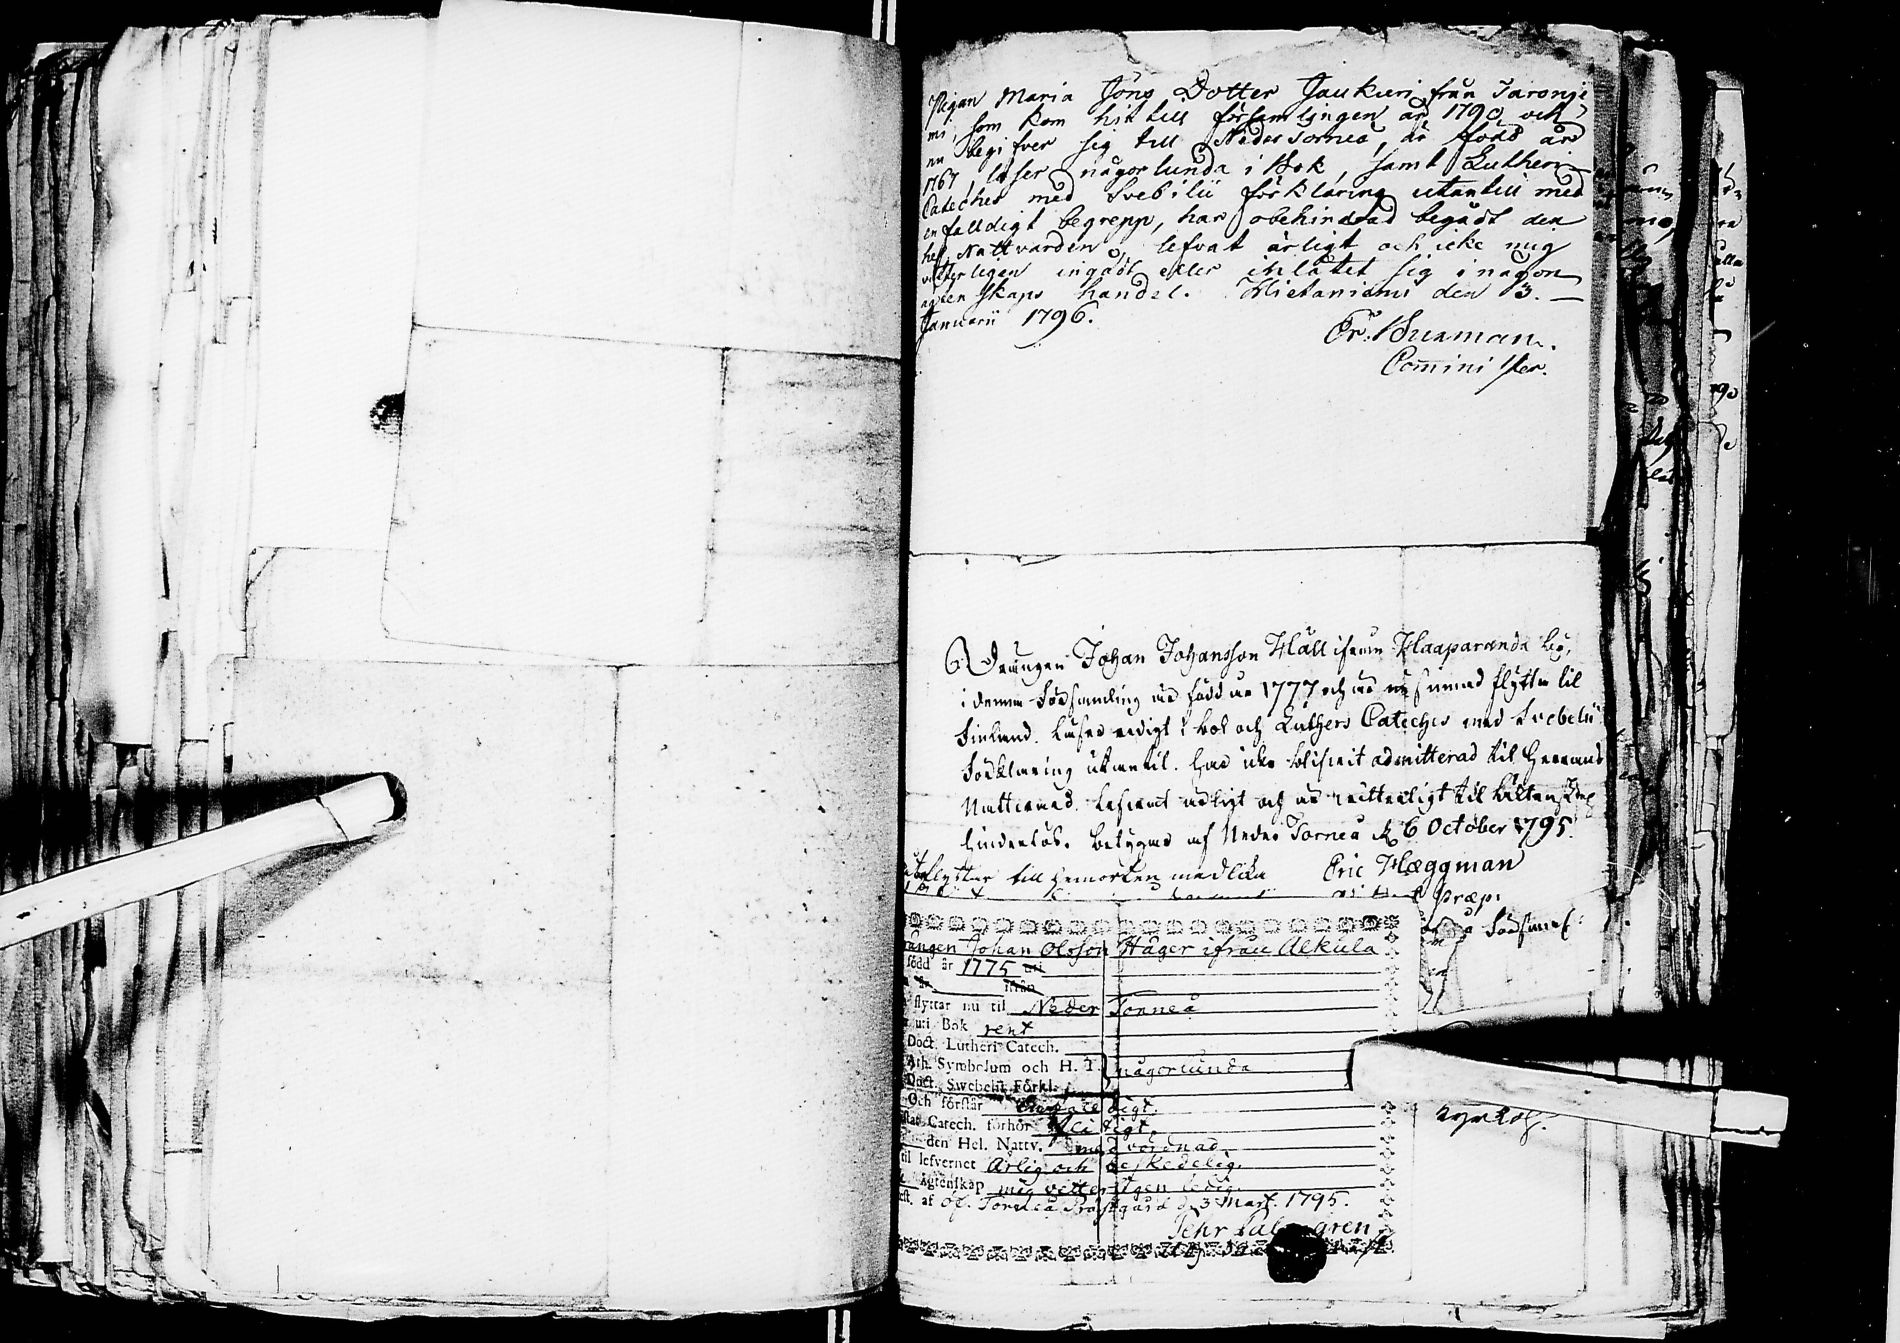 Pigan Maria Jöns Dotter Jaukuri från Tarongi
mi, som kom hit till församlingen år 1790, och
nu begifver sig till Neder Torneå, är född år
1767, läser någorlunda i Bok, samt Lutheri
Cateches med Svebilii förklaring utantill med
enfalldigt begrepp, har obehindrad begådt den
hel. Nattvarden, lefvat ärligt och icke mig
vitterligen ingådt eller inlåtet sig i någon
agtenskaps handel. Hietaniemi den 3.
Januarii 1796.
Er. Burman.
Cominister.
Drängen Johan Johansson Häll ifrån Haaparanda by,
i denna Församling är född år 1777 och är nu sinnad flytta til
Finland. Läser redigt i bok och Luthers Cateches med Svebelii
Förklaring utantil. Har icke blifvit admitterad til Herrans
Nattvard. Lefvat ärligt och är vitterligt til äktenskap
hinderlös. Betygas af Neder Torneå d. 6 October 1795.
Eric Hæggman
Præp.
flyttar till hemorten med lika
ängen Johan Olsson Häger ifrån Alkula
född år 1775 uti
år ifrån
flyttar nu til Neder Torneå
uti Bok rent
Doct. Lutheri Catech.
Ath. Symbolum och H. T. någorlunda
Doct. Swebelii Förkl.
Och förstår Enfaldigt.
Catech. förhör flitigt.
den Hel. Nattv. med vördnad.
til lefvernet Ärlig och beskedelig.
Ägtenskap mig vetterligen ledig.
af Öf. Torneå Prästgård d. 3 Mart. 1795.
Pehr Palmgren